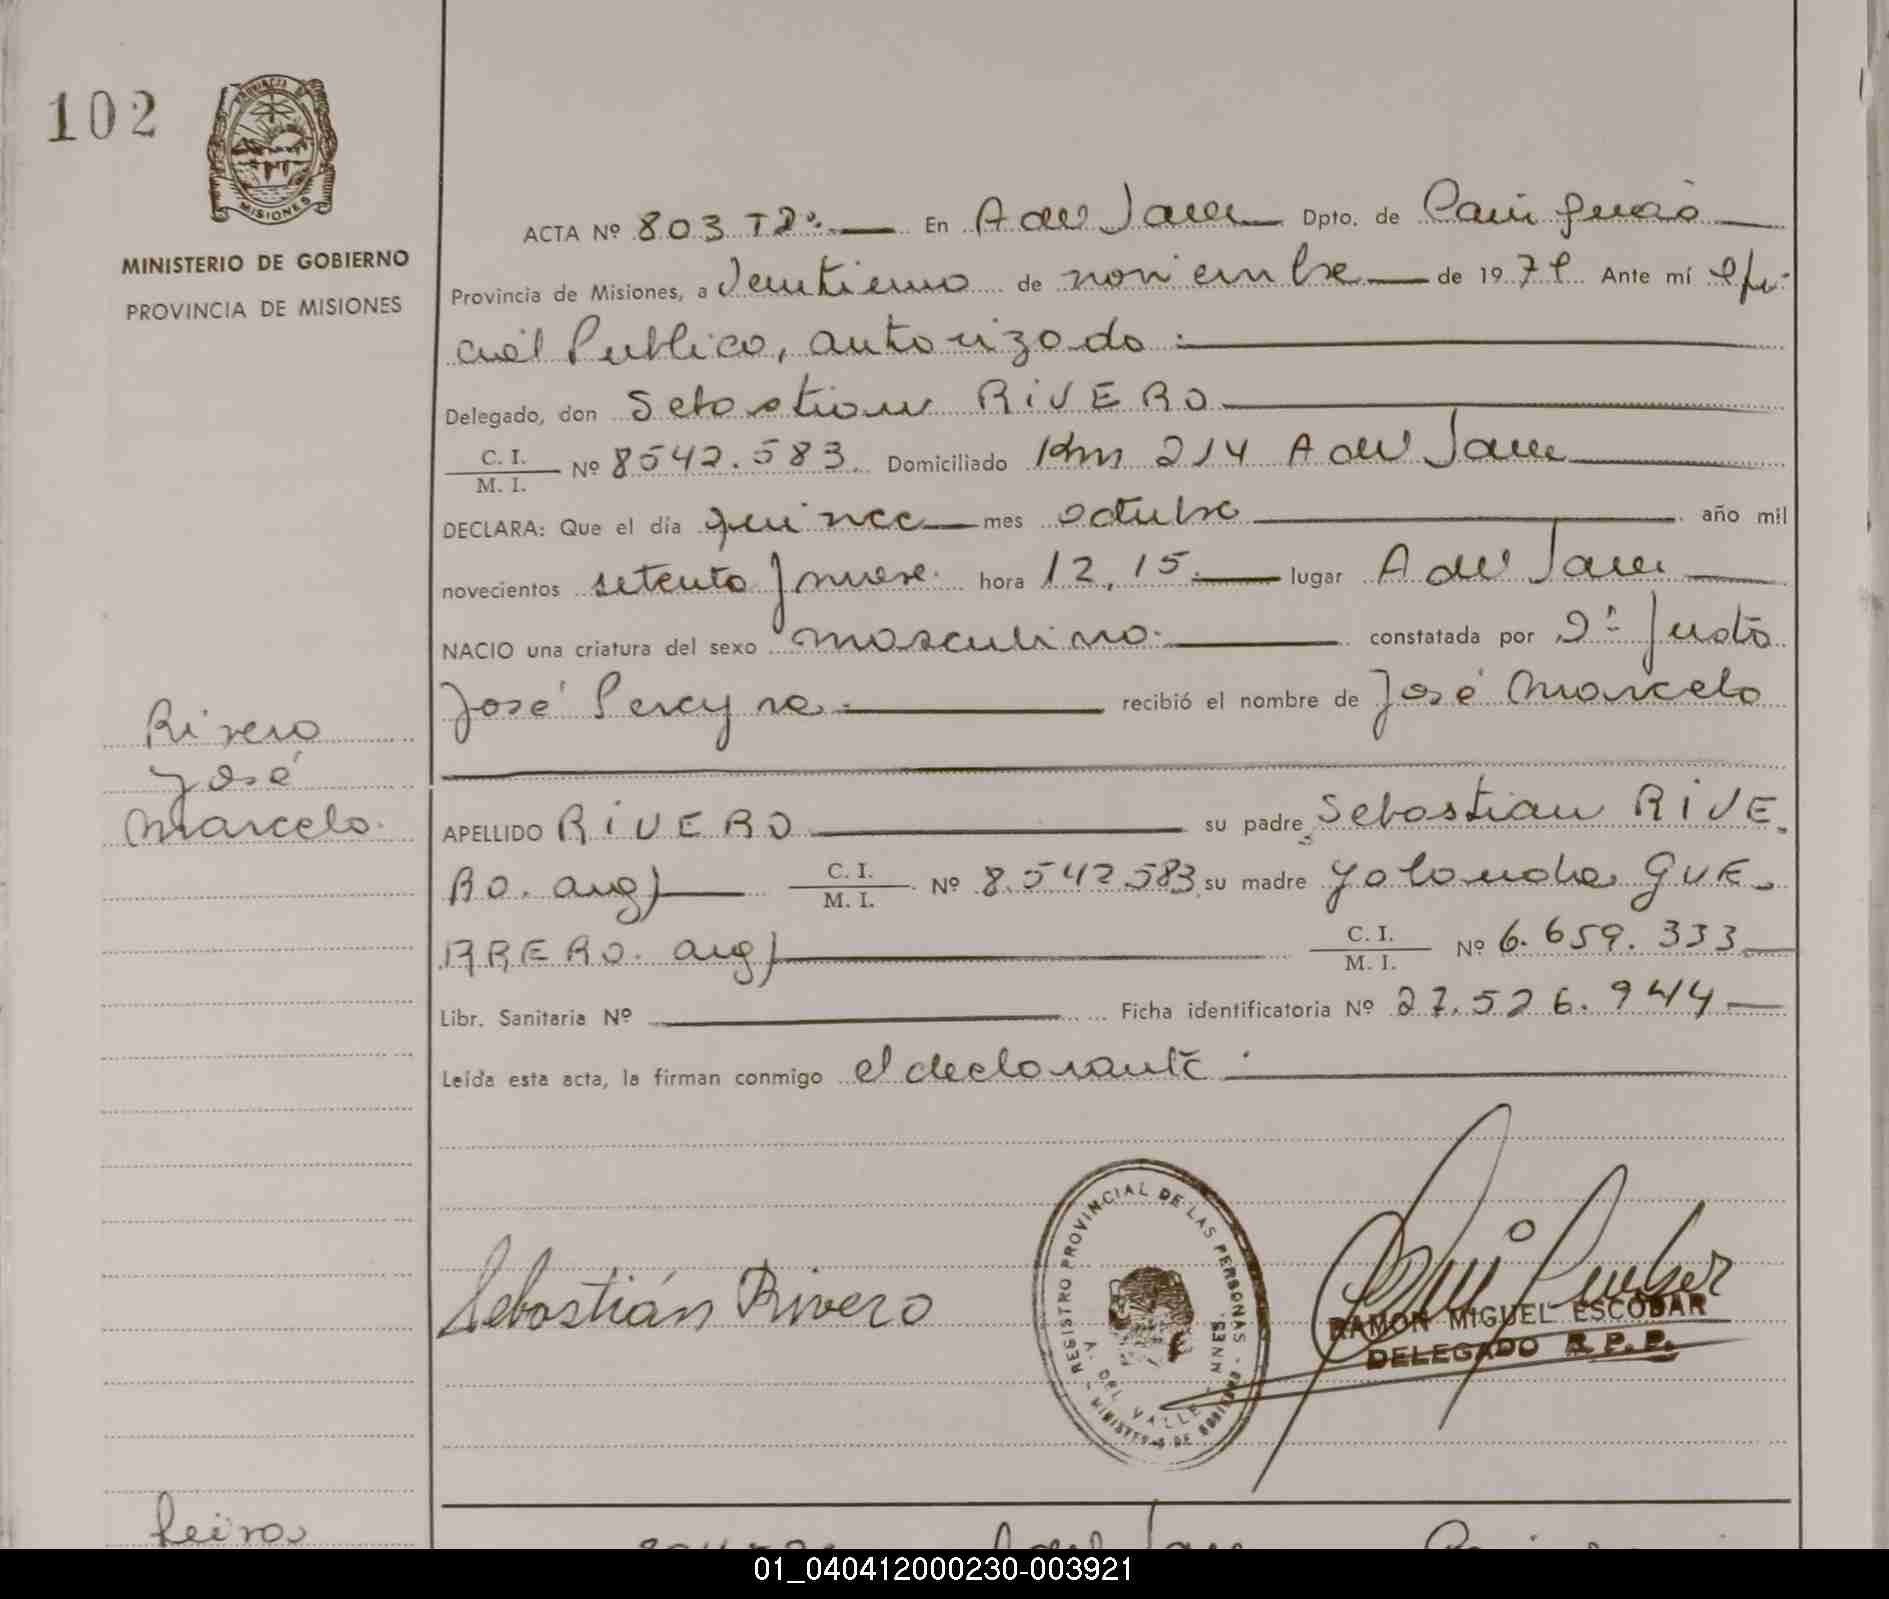 102
PROVINCIA DE
MISIONES
MINISTERIO DE GOBIERNO
PROVINCIA DE MISIONES
ACTA Nº 803 Tº2º. En A del Valle Dpto. de Cainguás
Provincia de Misiones, a veintiuno de noviembre de 1979. Ante mí Ofi-
cial Publico, autorizado:
Delegado, don Sebastian RIVERO
C. I.
M. I. Nº 8542.583. Domiciliado Km 214 A del Valle
DECLARA: Que el día quince mes octubre año mil
novecientos setenta y nueve. hora 12,15. lugar A del Valle
NACIO una criatura del sexo masculino. constatada por Dº Justo
José Pereyra recibió el nombre de José Marcelo
Rivero
José
Marcelo.
APELLIDO RIVERO su padre Sebastian RIVE-
RO. arg) C. I.
M. I. Nº 8.542583 su madre Yolanda GUE-
RRERO. arg) C. I.
M. I. Nº 6.659.333
Libr. Sanitaria Nº Ficha identificatoria Nº 27.526.944
Leída esta acta, la firman conmigo el declarante.
Sebastián Rivero
REGISTRO PROVINCIAL DE LAS PERSONAS
MINISTERIO DE GOBIERNO
A. DEL VALLE - MNES.
RAMON MIGUEL ESCOBAR
DELEGADO R.P.P.
01_040412000230-003921